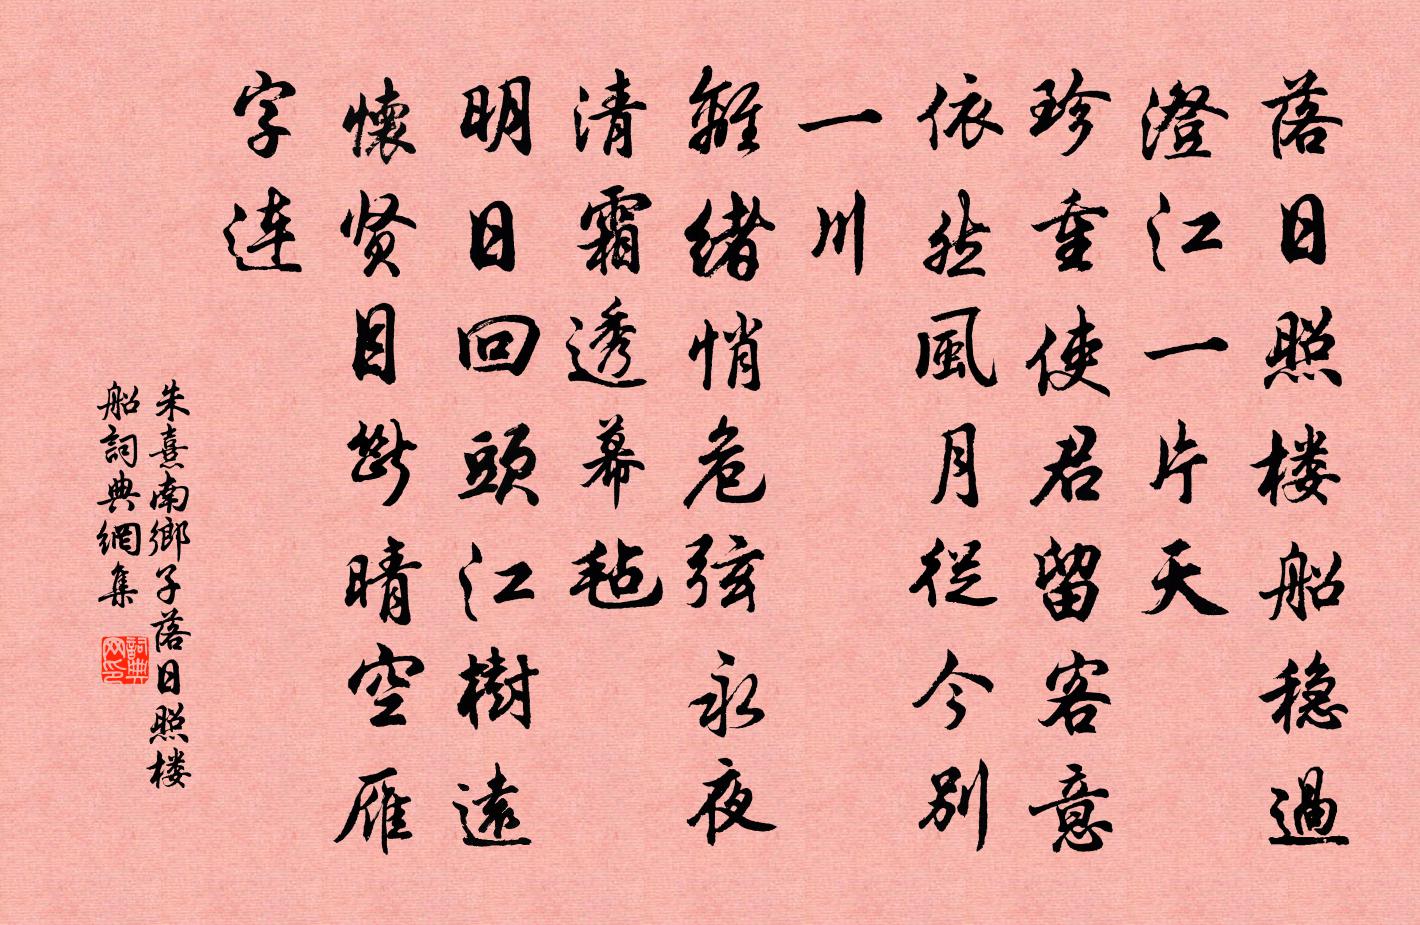 落日照楼船稳過
澄江一片天
珍重使君留客意
依然風月從今别
一川
離緒悄危弦永夜
清霜透幕毡
明日回頭江樹遠
懷贤目斷晴空雁
字连
朱熹南鄉子落日照楼
船詞典網集
詞典
网印